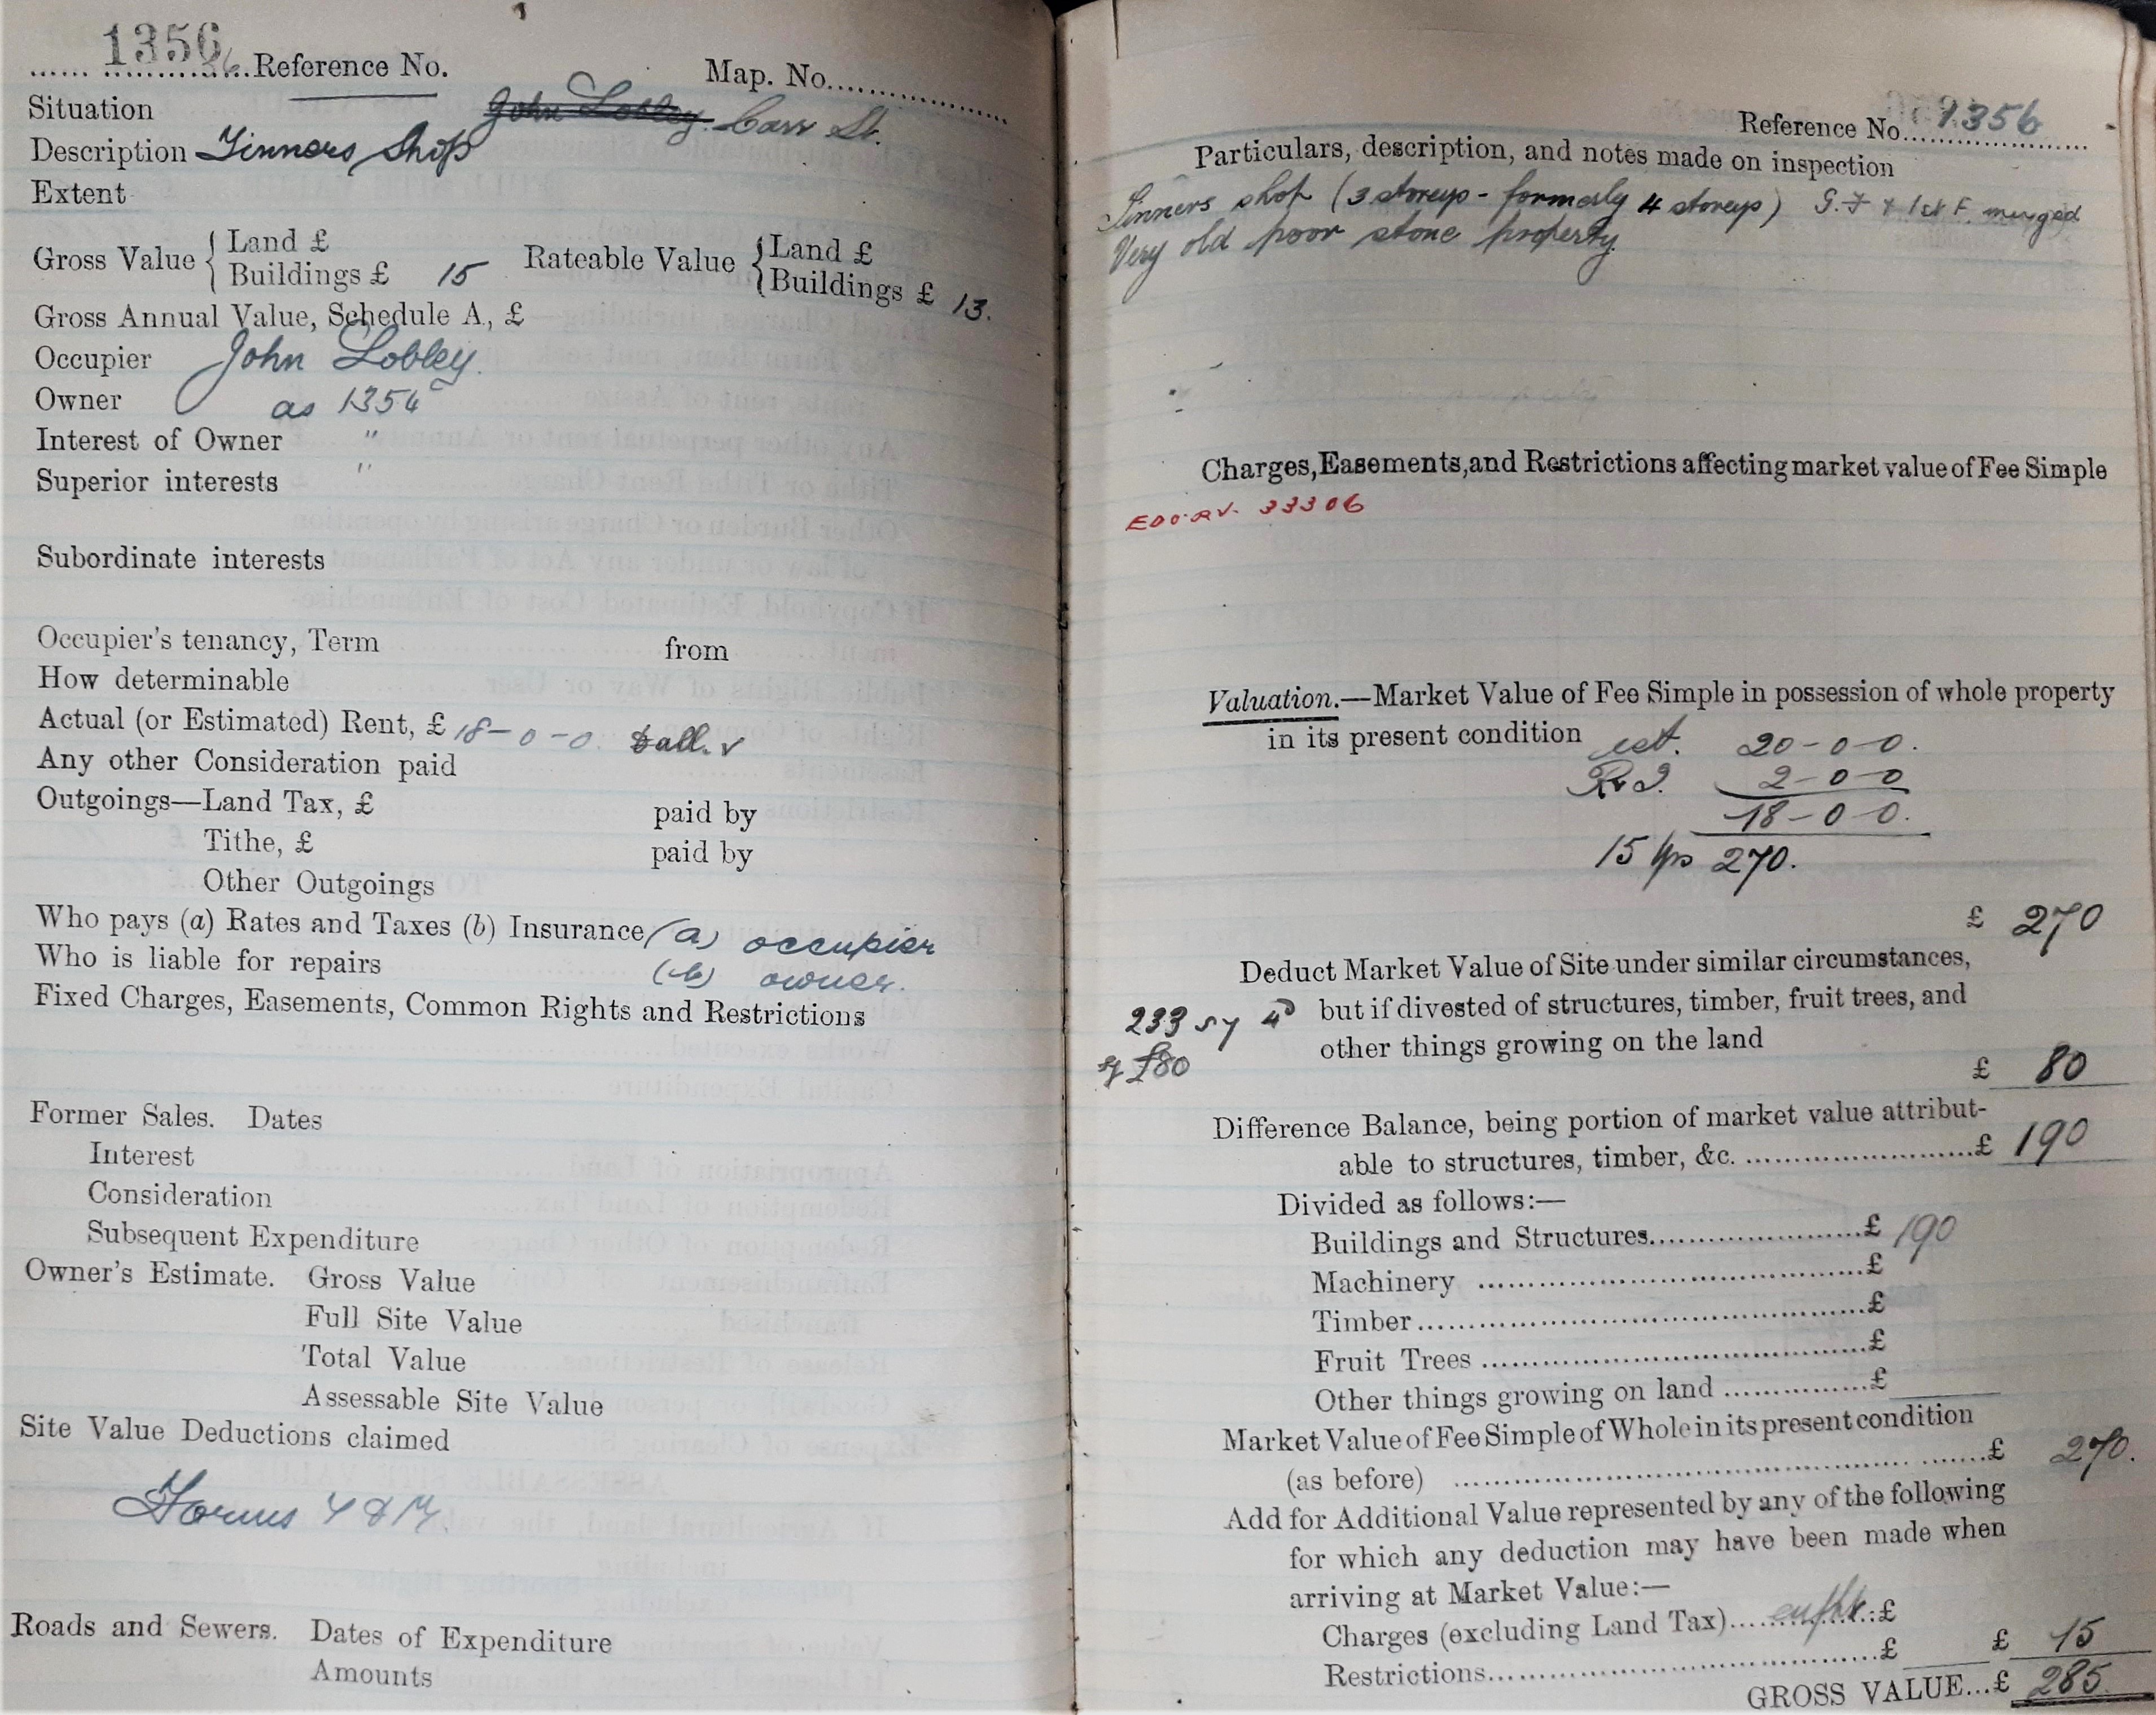 1356
Reference No. Map. No.
Situation John Lobley. Carr St.
Description Tinners Shop
Extent
Gross Value { Land £
Buildings £ 15
Rateable Value { Land £
Buildings £ 13.
Gross Annual Value, Schedule A, £
Occupier John Lobley.
Owner as 1354
Interest of Owner "
Superior interests "
Subordinate interests
Occupier's tenancy, Term from
How determinable
Actual (or Estimated) Rent, £ 18-0-0.
Any other Consideration paid
Outgoings—Land Tax, £ paid by
Tithe, £ paid by
Other Outgoings
Who pays (a) Rates and Taxes (b) Insurance (a) occupier
Who is liable for repairs (b) owner.
Fixed Charges, Easements, Common Rights and Restrictions
Former Sales. Dates
Interest
Consideration
Subsequent Expenditure
Owner's Estimate. Gross Value
Full Site Value
Total Value
Assessable Site Value
Site Value Deductions claimed
Forms 4 &
Roads and Sewers. Dates of Expenditure
Amounts
Reference No. 1356
Particulars, description, and notes made on inspection
Tinners shop (3 storeys - formerly 4 storeys) G.F & 1st F. merged
Very old poor stone property.
Charges, Easements, and Restrictions affecting market value of Fee Simple
33306
Valuation.—Market Value of Fee Simple in possession of whole property
in its present condition est. 20-0-0.
2-0-0
18-0-0.
15 yrs 270.
£ 270
Deduct Market Value of Site under similar circumstances,
but if divested of structures, timber, fruit trees, and
other things growing on the land
233 sy
£80
£ 80
Difference Balance, being portion of market value attribut-
able to structures, timber, &c. £ 190
Divided as follows:—
Buildings and Structures £ 190
Machinery £
Timber £
Fruit Trees £
Other things growing on land £
Market Value of Fee Simple of Whole in its present condition
(as before) £ 270.
Add for Additional Value represented by any of the following
for which any deduction may have been made when
arriving at Market Value:—
Charges (excluding Land Tax) £
Restrictions £ £ 15
GROSS VALUE...£ 285.